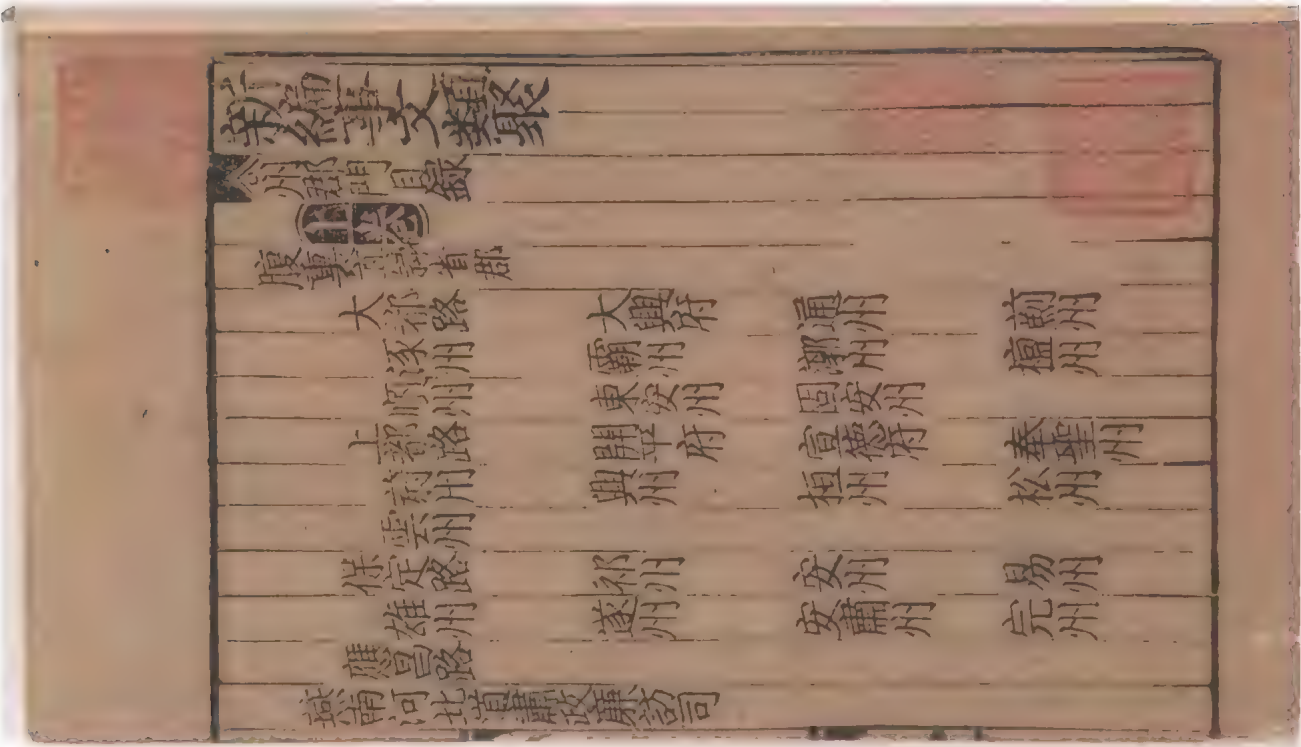 新編事文類聚
州郡門目錄
上卷
腹裏直隸省部
大都路 大興府 通州 薊州
涿州 霸州 漷州 檀州
順州 東安州 固安州
上都路 開平府 宣德府 奉聖州
蔚州 興州 桓州 松州
雲州
保定路 祁州 安州 易州
雄州 遂州 安肅州 完州
應昌路
燕南河北道肅政廉訪司